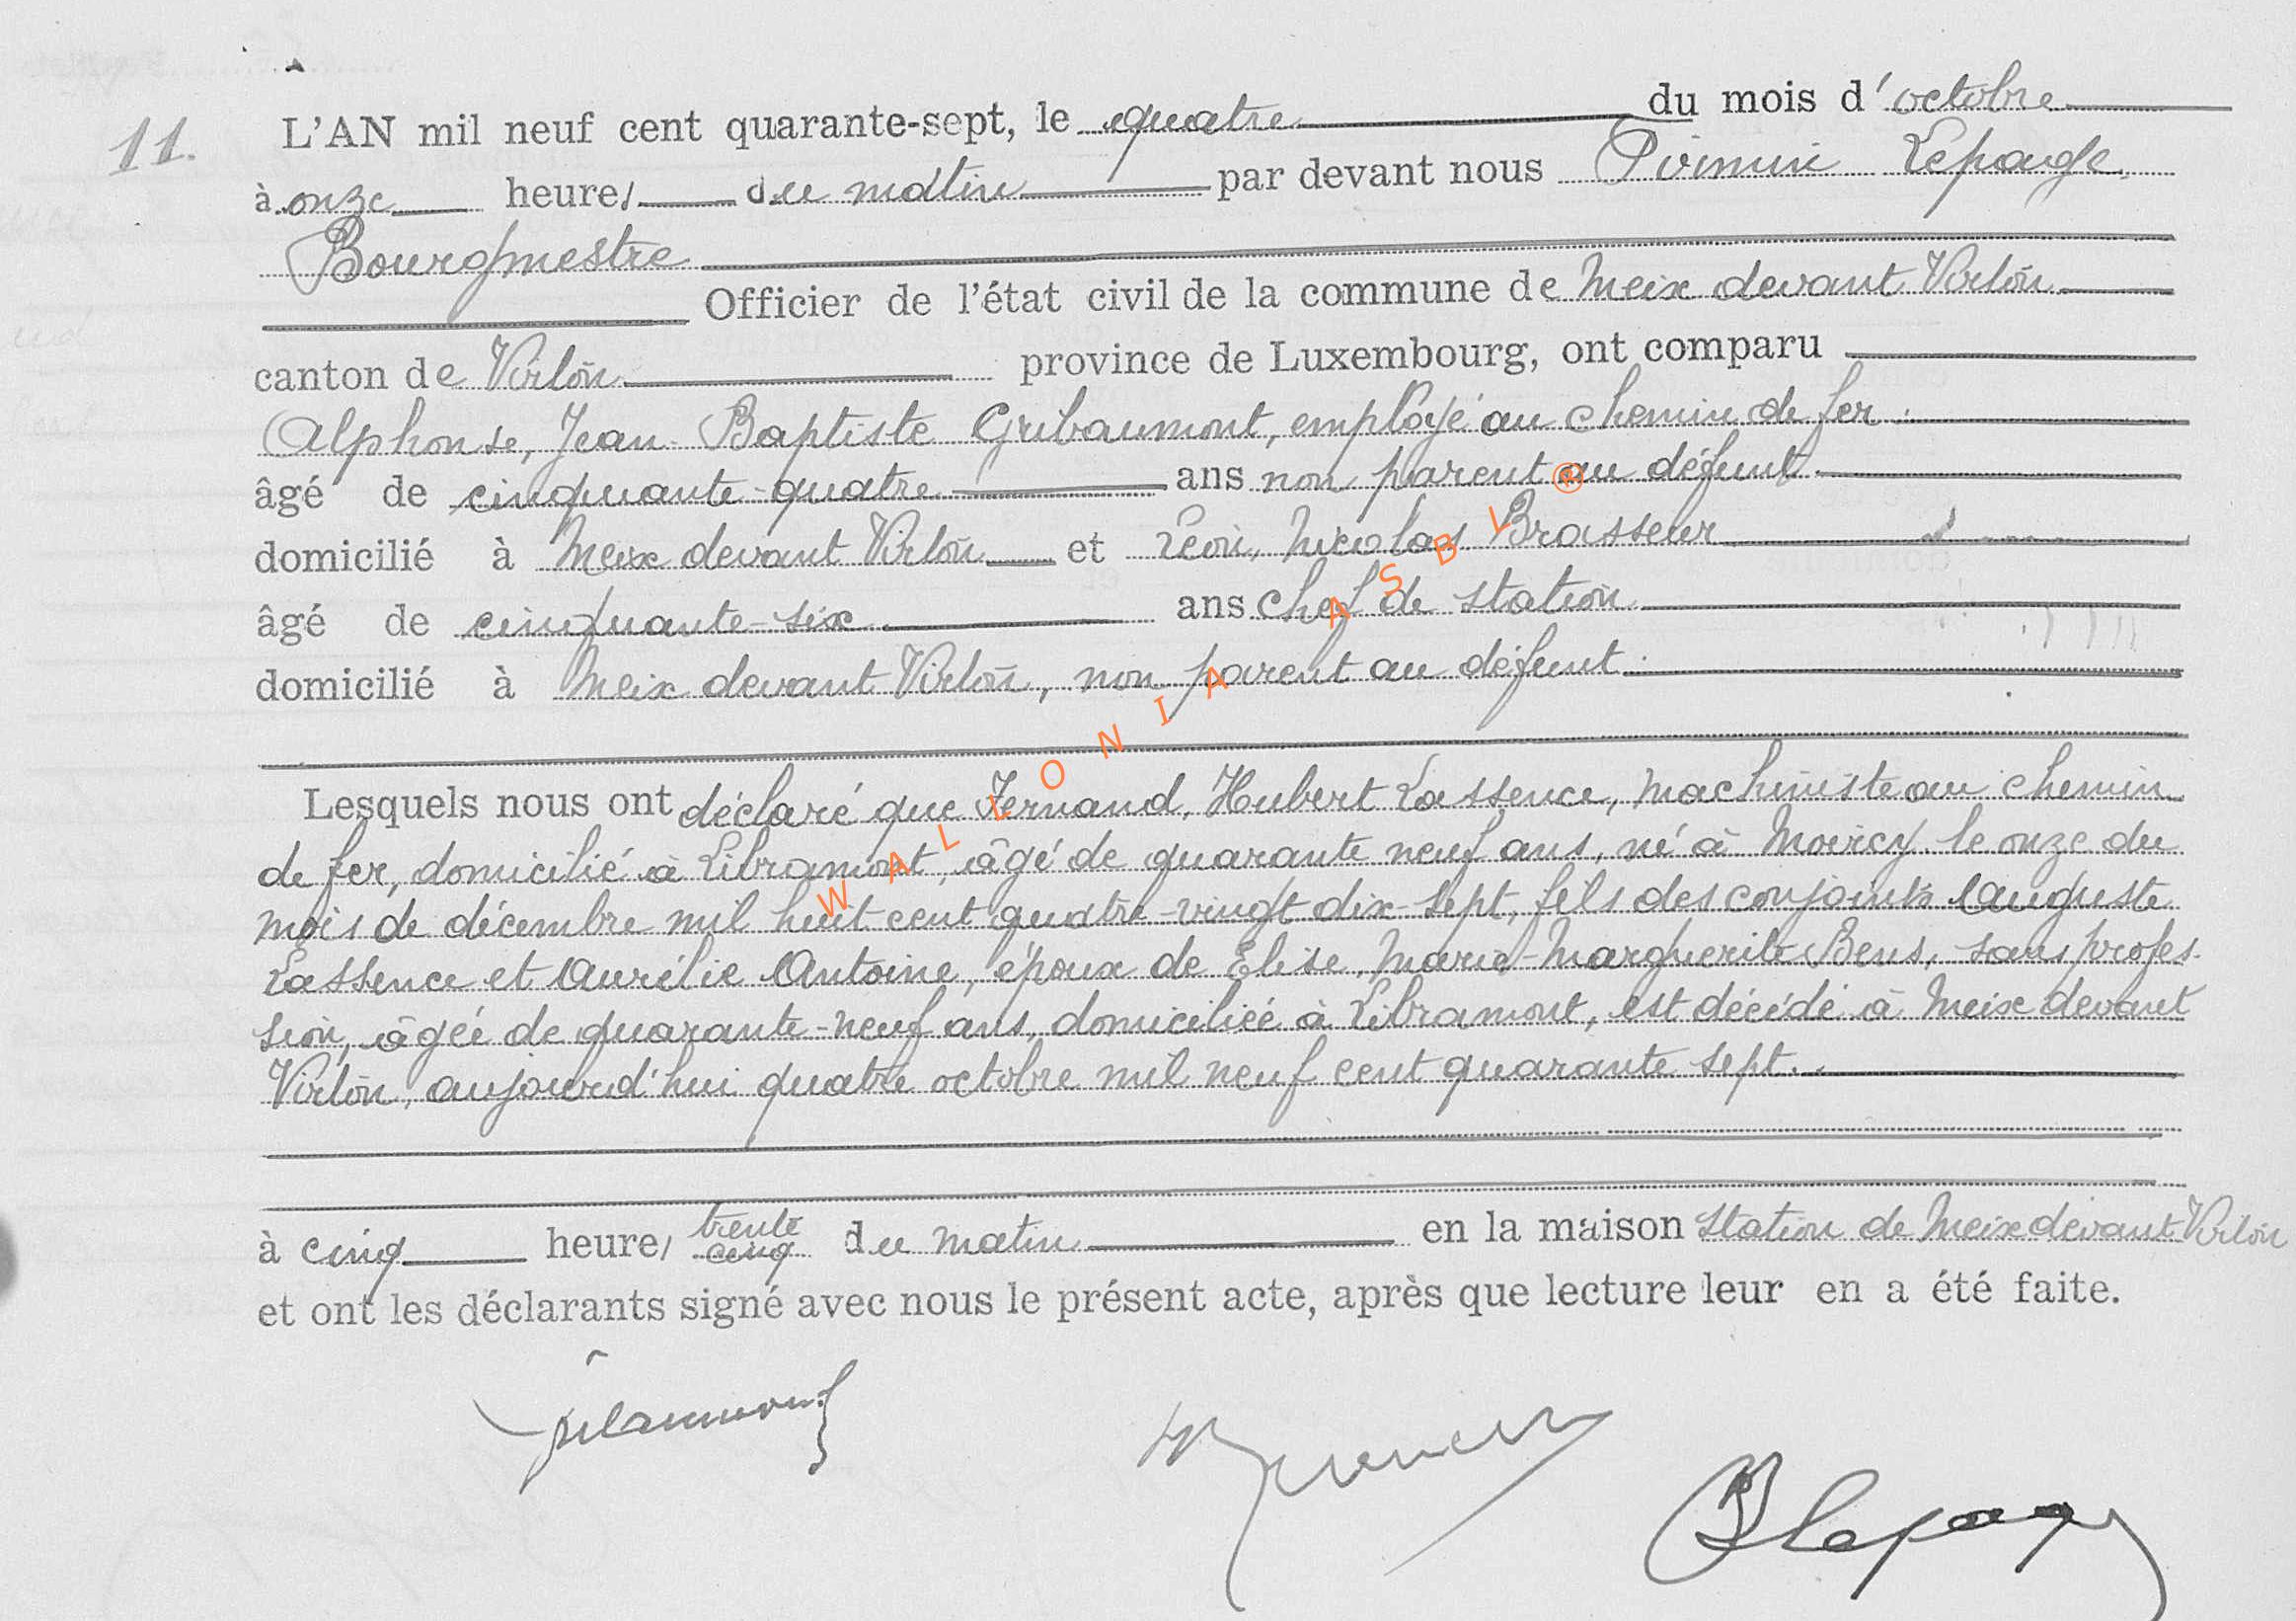 11. L'AN mil neuf cent quarante-sept, le quatre du mois d'octobre
à onze heures du matin par devant nous Pirmin Lepage
Bourgmestre
Officier de l'état civil de la commune de Meix devant Virton
canton de Virton province de Luxembourg, ont comparu
Alphonse, Jean-Baptiste Gribaumont, employé au chemin de fer.
âgé de cinquante-quatre ans non parent au défunt
domicilié à Meix devant Virton et Léon, Nicolas Brasseur
âgé de cinquante-six ans chef de station
domicilié à Meix devant Virton, non parent au défunt.
Lesquels nous ont déclaré que Fernand, Hubert Lassence, machiniste au chemin
de fer, domicilié à Libramont, âgé de quarante neuf ans, né à Moircy le onze du
mois de décembre mil huit cent quatre-vingt dix-sept, fils des conjoints Auguste
Lassence et Aurélie Antoine, époux de Elise, Marie-Marguerite Bens, sans profes-
sion, âgée de quarante-neuf ans, domiciliée à Libramont, est décédé à Meix devant
Virton, aujourd'hui quatre octobre mil neuf cent quarante sept.
à cinq heures trente cinq du matin en la maison station de Meix devant Virton
et ont les déclarants signé avec nous le présent acte, après que lecture leur en a été faite.
Lepage
WALLONIA ASBL ®